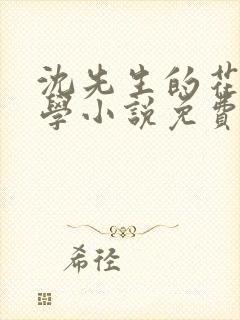 沈先生的花
學小說免費
希徑